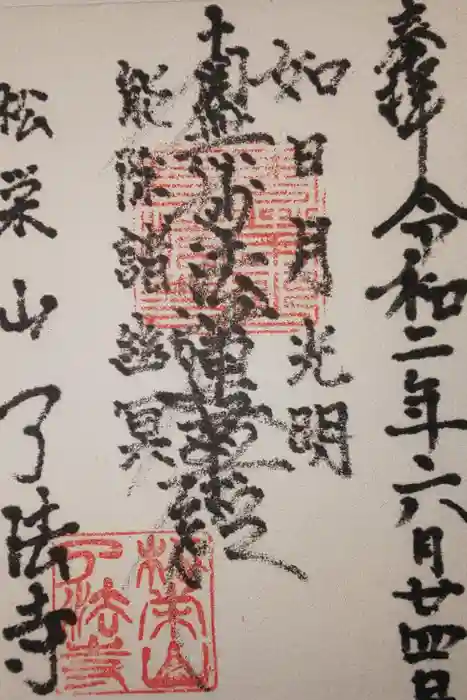 奉拝 令和二年六月廿四日
如日月光明
南無妙法蓮華経
能除諸幽冥
松栄山 了法寺
松栄山
了法寺